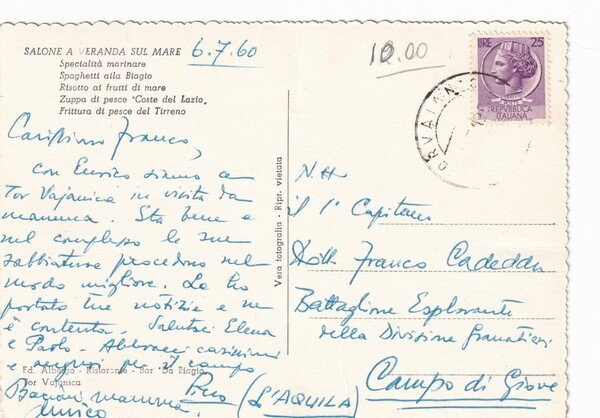 SALONE A VERANDA SUL MARE
Specialità marinare
Spaghetti alla Biagio
Risotto ai frutti di mare
Zuppa di pesce "Coste del Lazio"
Frittura di pesce del Tirreno
6.7.60
Carissimo Franco,
con Enrico siamo a
Tor Vajanica in visita da
mamma. Sta bene e
nel complesso le sue
sabbiature procedono nel
modo migliore. Le ho
portato tue notizie e ne
è contenta. Salutaci Elena
e Paolo. Abbracci carissimi
e auguri per il campo
Piero
Bacioni mamma.
Enrico
Ed. Albergo - Ristorante - Bar "Da Biagio"
Tor Vajanica
Vera fotografia - Ripr. vietata
10.00
LIRE 25
REPUBBLICA
ITALIANA
ORVAIANI
N.H.
il 1° Capitano
Dott. Franco Cadeddu
Battaglione Esplorante
della Divisione Granatieri
Campo di Giove
(L'AQUILA)